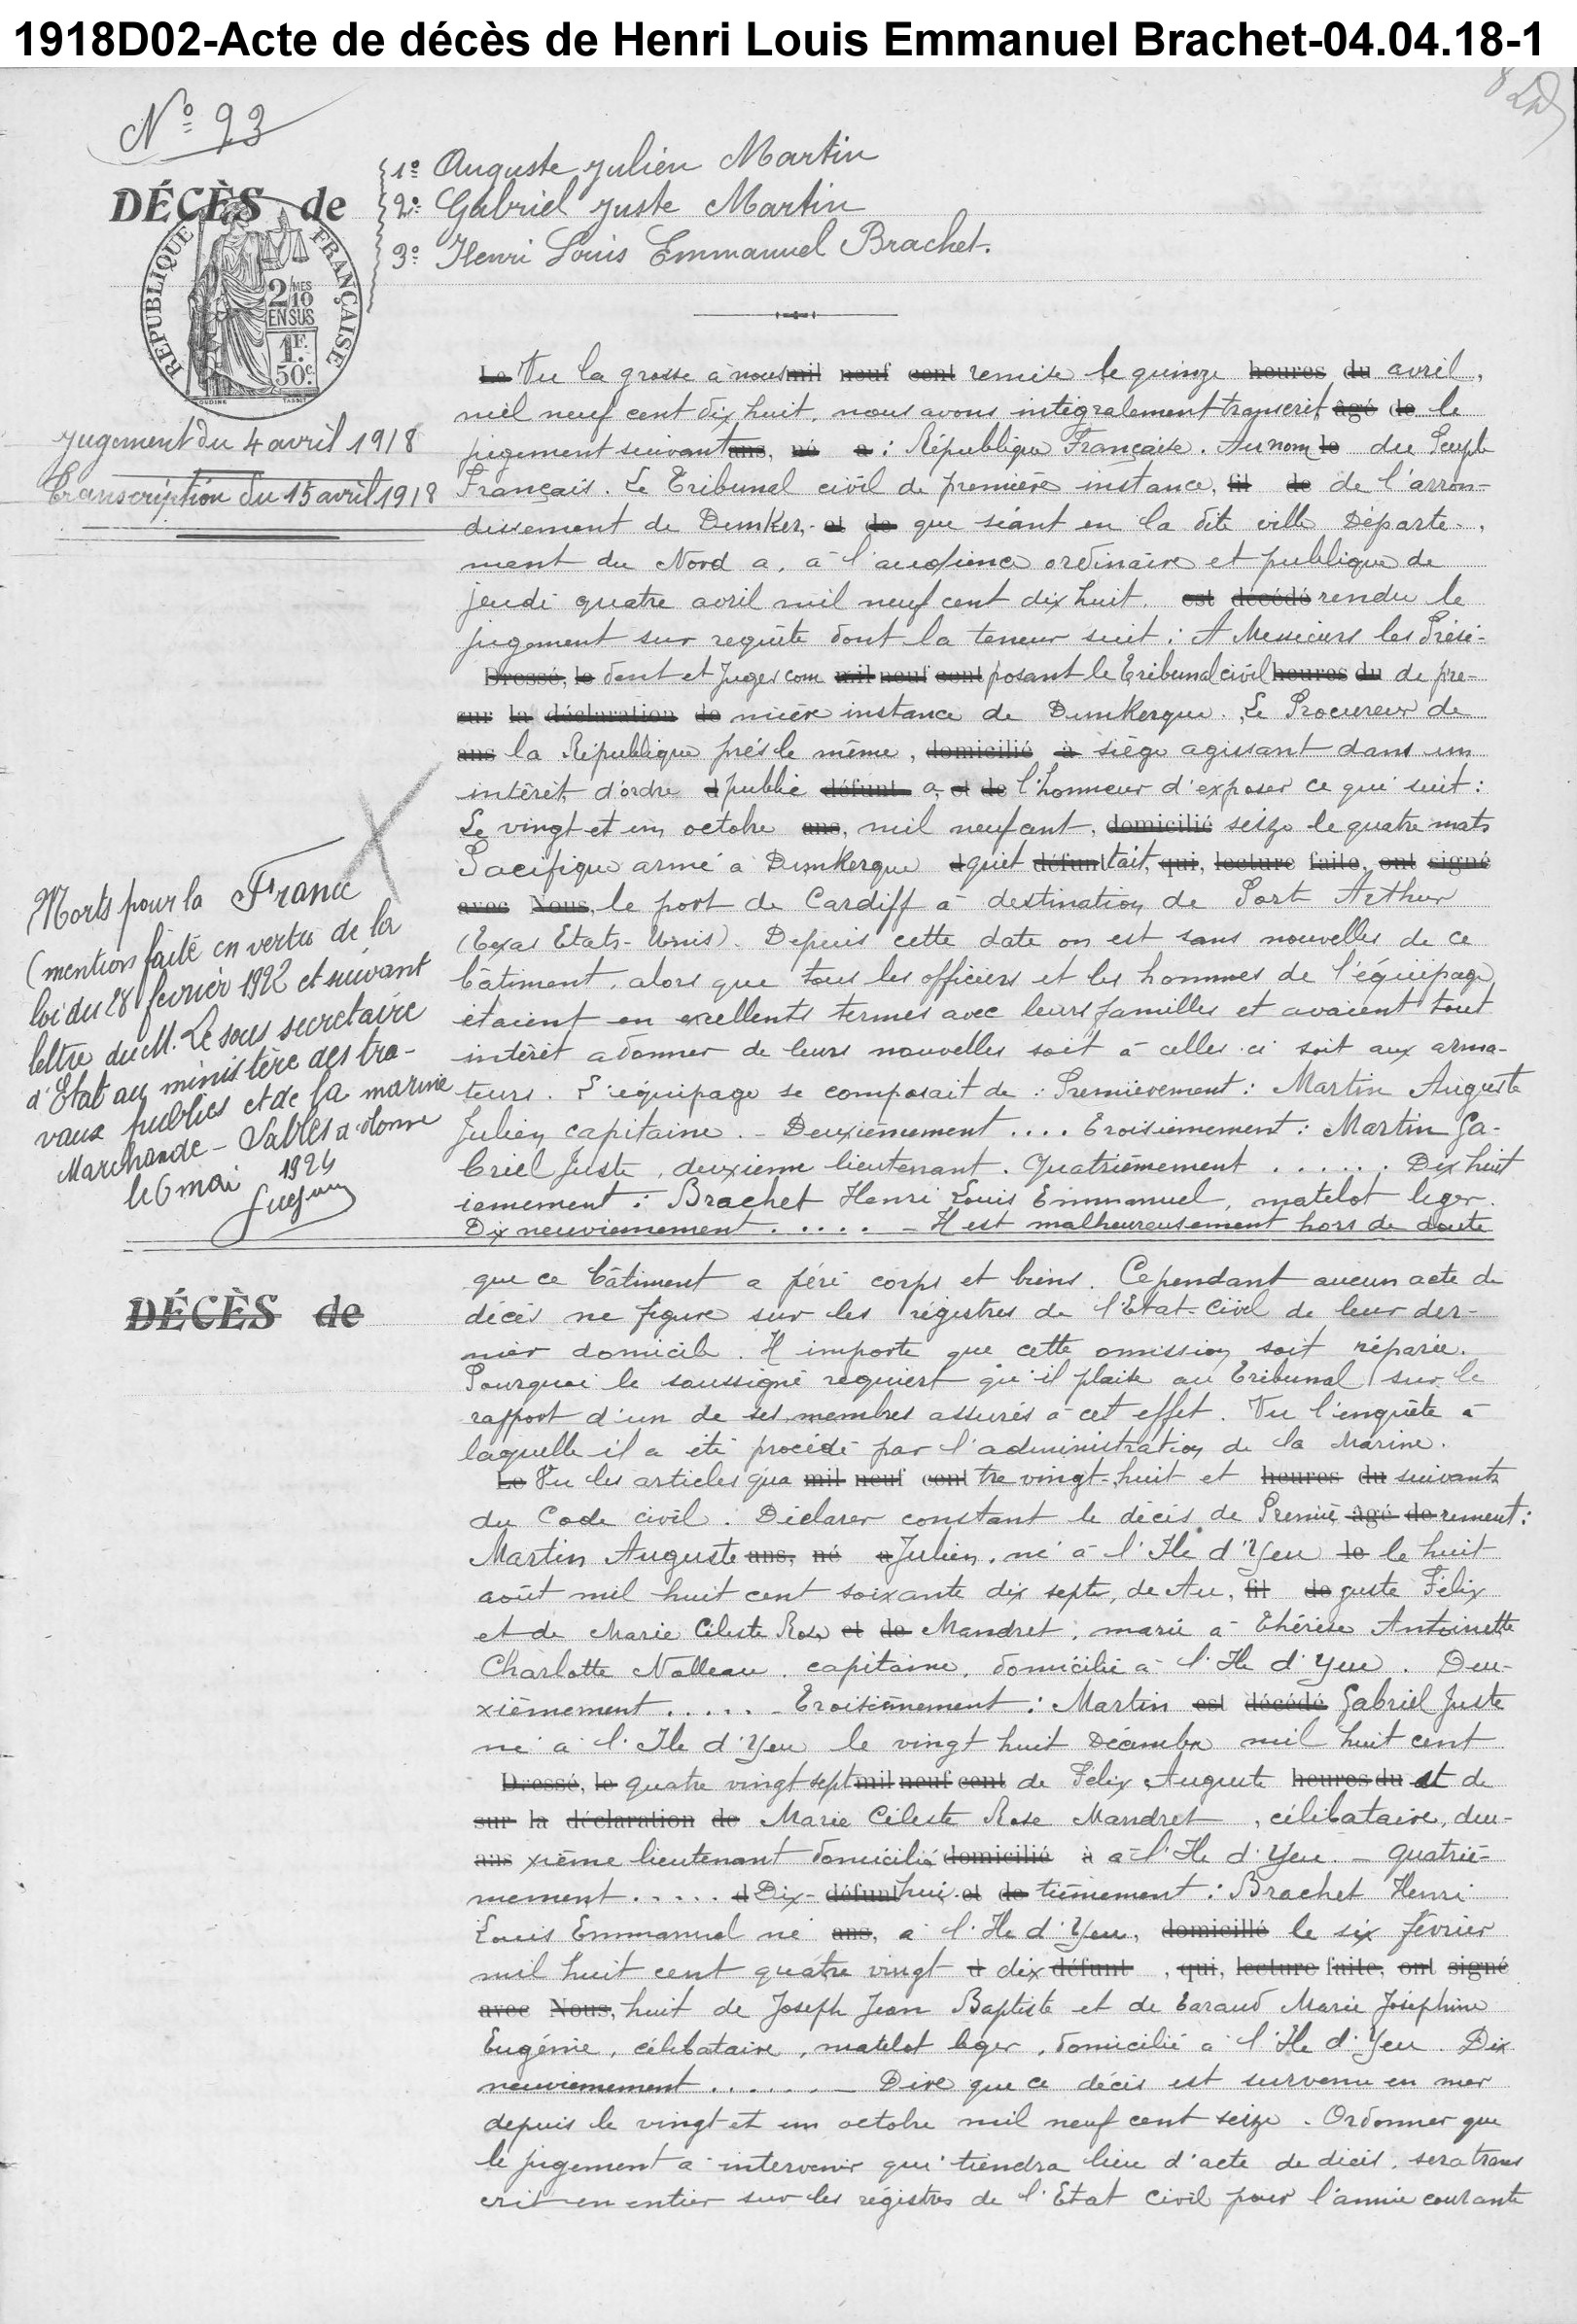 1918D02-Acte de décès de Henri Louis Emmanuel Brachet-04.04.18-1
N° 93
DÉCÈS de
1° Auguste Julien Martin
2° Gabriel Juste Martin
3° Henri Louis Emmanuel Brachet.
RÉPUBLIQUE FRANÇAISE
2/10MES
EN SUS
1F.
50c.
OUDINÉ TASSET
Jugement du 4 avril 1918
Transcription du 15 avril 1918
Le Vu la grosse à nous mil neuf cent remise le quinze heures du avril,
mil neuf cent dix huit, nous avons intégralement transcrit âgé de le
jugement suivant ans, né a : République Française. Au nom le du Peuple
Français. Le Tribunal civil de première instance, fil de de l'arron-
dissement de Dunker- et de que séant en la dite ville Départe-
ment du Nord a, à l'audience ordinaire et publique de
jeudi quatre avril mil neuf cent dix huit. est décédé rendu le
jugement sur requête dont la teneur suit : A Messieurs les Prési-
Dressé, le dent et Juges com mil neuf cent posant le Tribunal civil heures du de pre-
sur la déclaration de mière instance de Dunkerque. Le Procureur de
ans la République près le même, domicilié à siège agissant dans un
intérêt d'ordre d public défunt a, et de l'honneur d'exposer ce qui suit :
Le vingt et un octobre ans, mil neuf cent, domicilié seize le quatre mats
Pacifique armé à Dunkerque d quit défunt tait, qui, lecture faite, ont signé
avec Nous, le port de Cardiff à destination de Port Arthur
(Texas Etats-Unis). Depuis cette date on est sans nouvelles de ce
bâtiment, alors que tous les officiers et les hommes de l'équipage
étaient en excellents termes avec leurs familles et avaient tout
intérêt a donner de leurs nouvelles soit à celles ci soit aux arma-
teurs. L'équipage se composait de : Premièrement : Martin Auguste
Julien capitaine. - Deuxièmement .... Troisièmement : Martin Ga-
briel Juste, deuxieme lieutenant. Quatrièmement ...... Dix huit
iemement : Brachet Henri Louis Emmanuel, matelot leger.
Dix neuviemement ..... - Il est malheureusement hors de doute
Morts pour la France
(mention faite en vertu de la
loi du 28 fevrier 1922 et suivant
lettre du M. Le sous secretaire
d'Etat au ministère des tra-
vaux publics et de la marine
Marchande - Sables d'olonne
le 6 mai 1924
DÉCÈS de
que ce bâtiment a péri corps et biens. Cependant aucun acte de
décès ne figure sur les régistres de l'Etat-Civil de leur der-
nier domicile. Il importe que cette omission soit réparée.
Pourquoi le soussigné requiert qu'il plaise au Tribunal sur le
rapport d'un de ses membres assurés à cet effet. Vu l'enquête à
laquelle il a été procédé par l'administration de la Marine.
Le Vu les articles qua mil neuf cent tre vingt-huit et heures du suivants
du Code civil. Déclarer constant le décès de Premiè âgé de rement :
Martin Auguste ans, né a Julien, né à l'Ile d'Yeu le le huit
août mil huit cent soixante dix sept, de Au, fil de guste Félix
et de Marie Céleste Rose et de Mandret, marié à Thérèse Antoinette
Charlotte Nolleau, capitaine, domicilié à l'Ile d'Yeu. Deu-
xièmement ..... - Troisièmement : Martin est décédé Gabriel Juste
né à l'Ile d'Yeu le vingt huit Décembre mil huit cent
Dressé, le quatre vingt sept mil neuf cent de Felix Auguste heures du et de
sur la déclaration de Marie Céleste Rose Mandret, célibataire, deu-
ans xième lieutenant domicilié domicilié à à l'Ile d'Yeu. - Quatriè-
mement ..... d Dix- défunt hui et de tièmement : Brachet Henri
Louis Emmanuel né ans, à l'Ile d'Yeu, domicilié le six février
mil huit cent quatre vingt d dix défunt, qui, lecture faite, ont signé
avec Nous, huit de Joseph Jean Baptiste et de Taraud Marie Joséphine
Eugénie, célibataire, matelot leger, domicilié à l'Ile d'Yeu. Dix
neuviemement ...... - Dire que ce décès est survenu en mer
depuis le vingt et un octobre mil neuf cent seize. Ordonner que
le jugement à intervenir qui tiendra lieu d'acte de décès, sera trans
crit en entier sur les régistres de l'Etat civil pour l'année courante